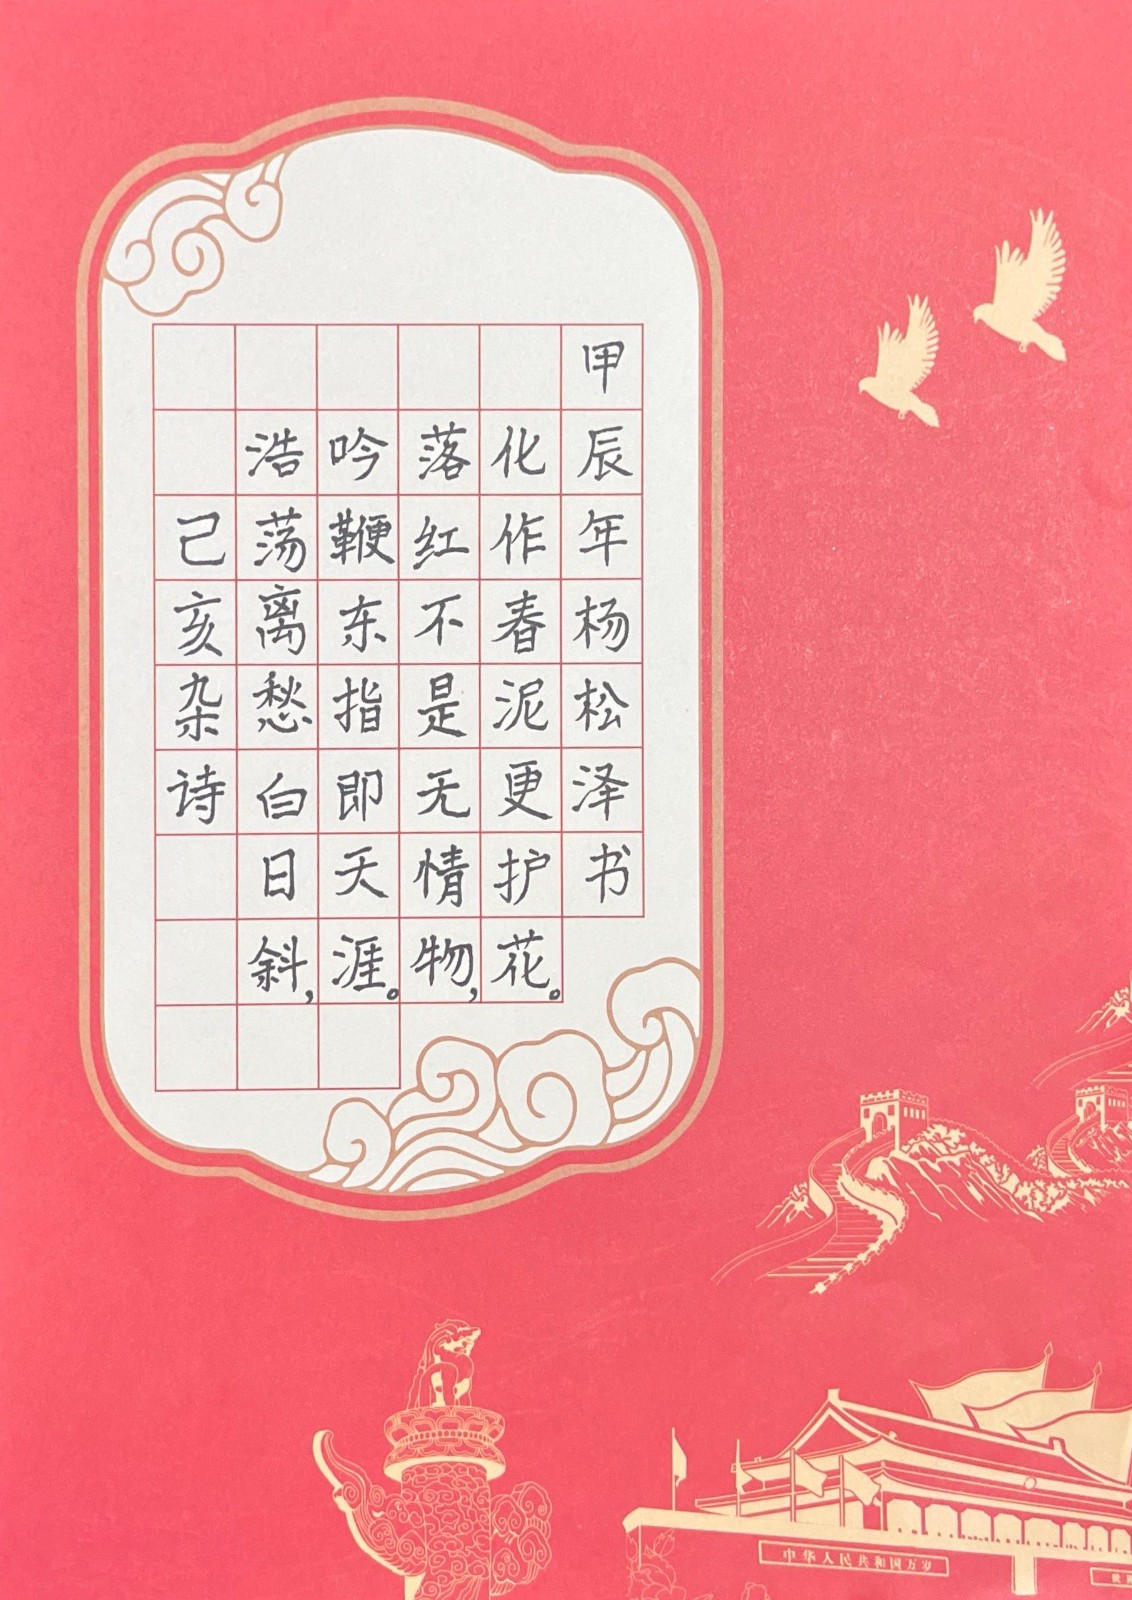 己亥杂诗
浩荡离愁白日斜，
吟鞭东指即天涯。
落红不是无情物，
化作春泥更护花。
甲辰年杨松泽书
中华人民共和国万岁